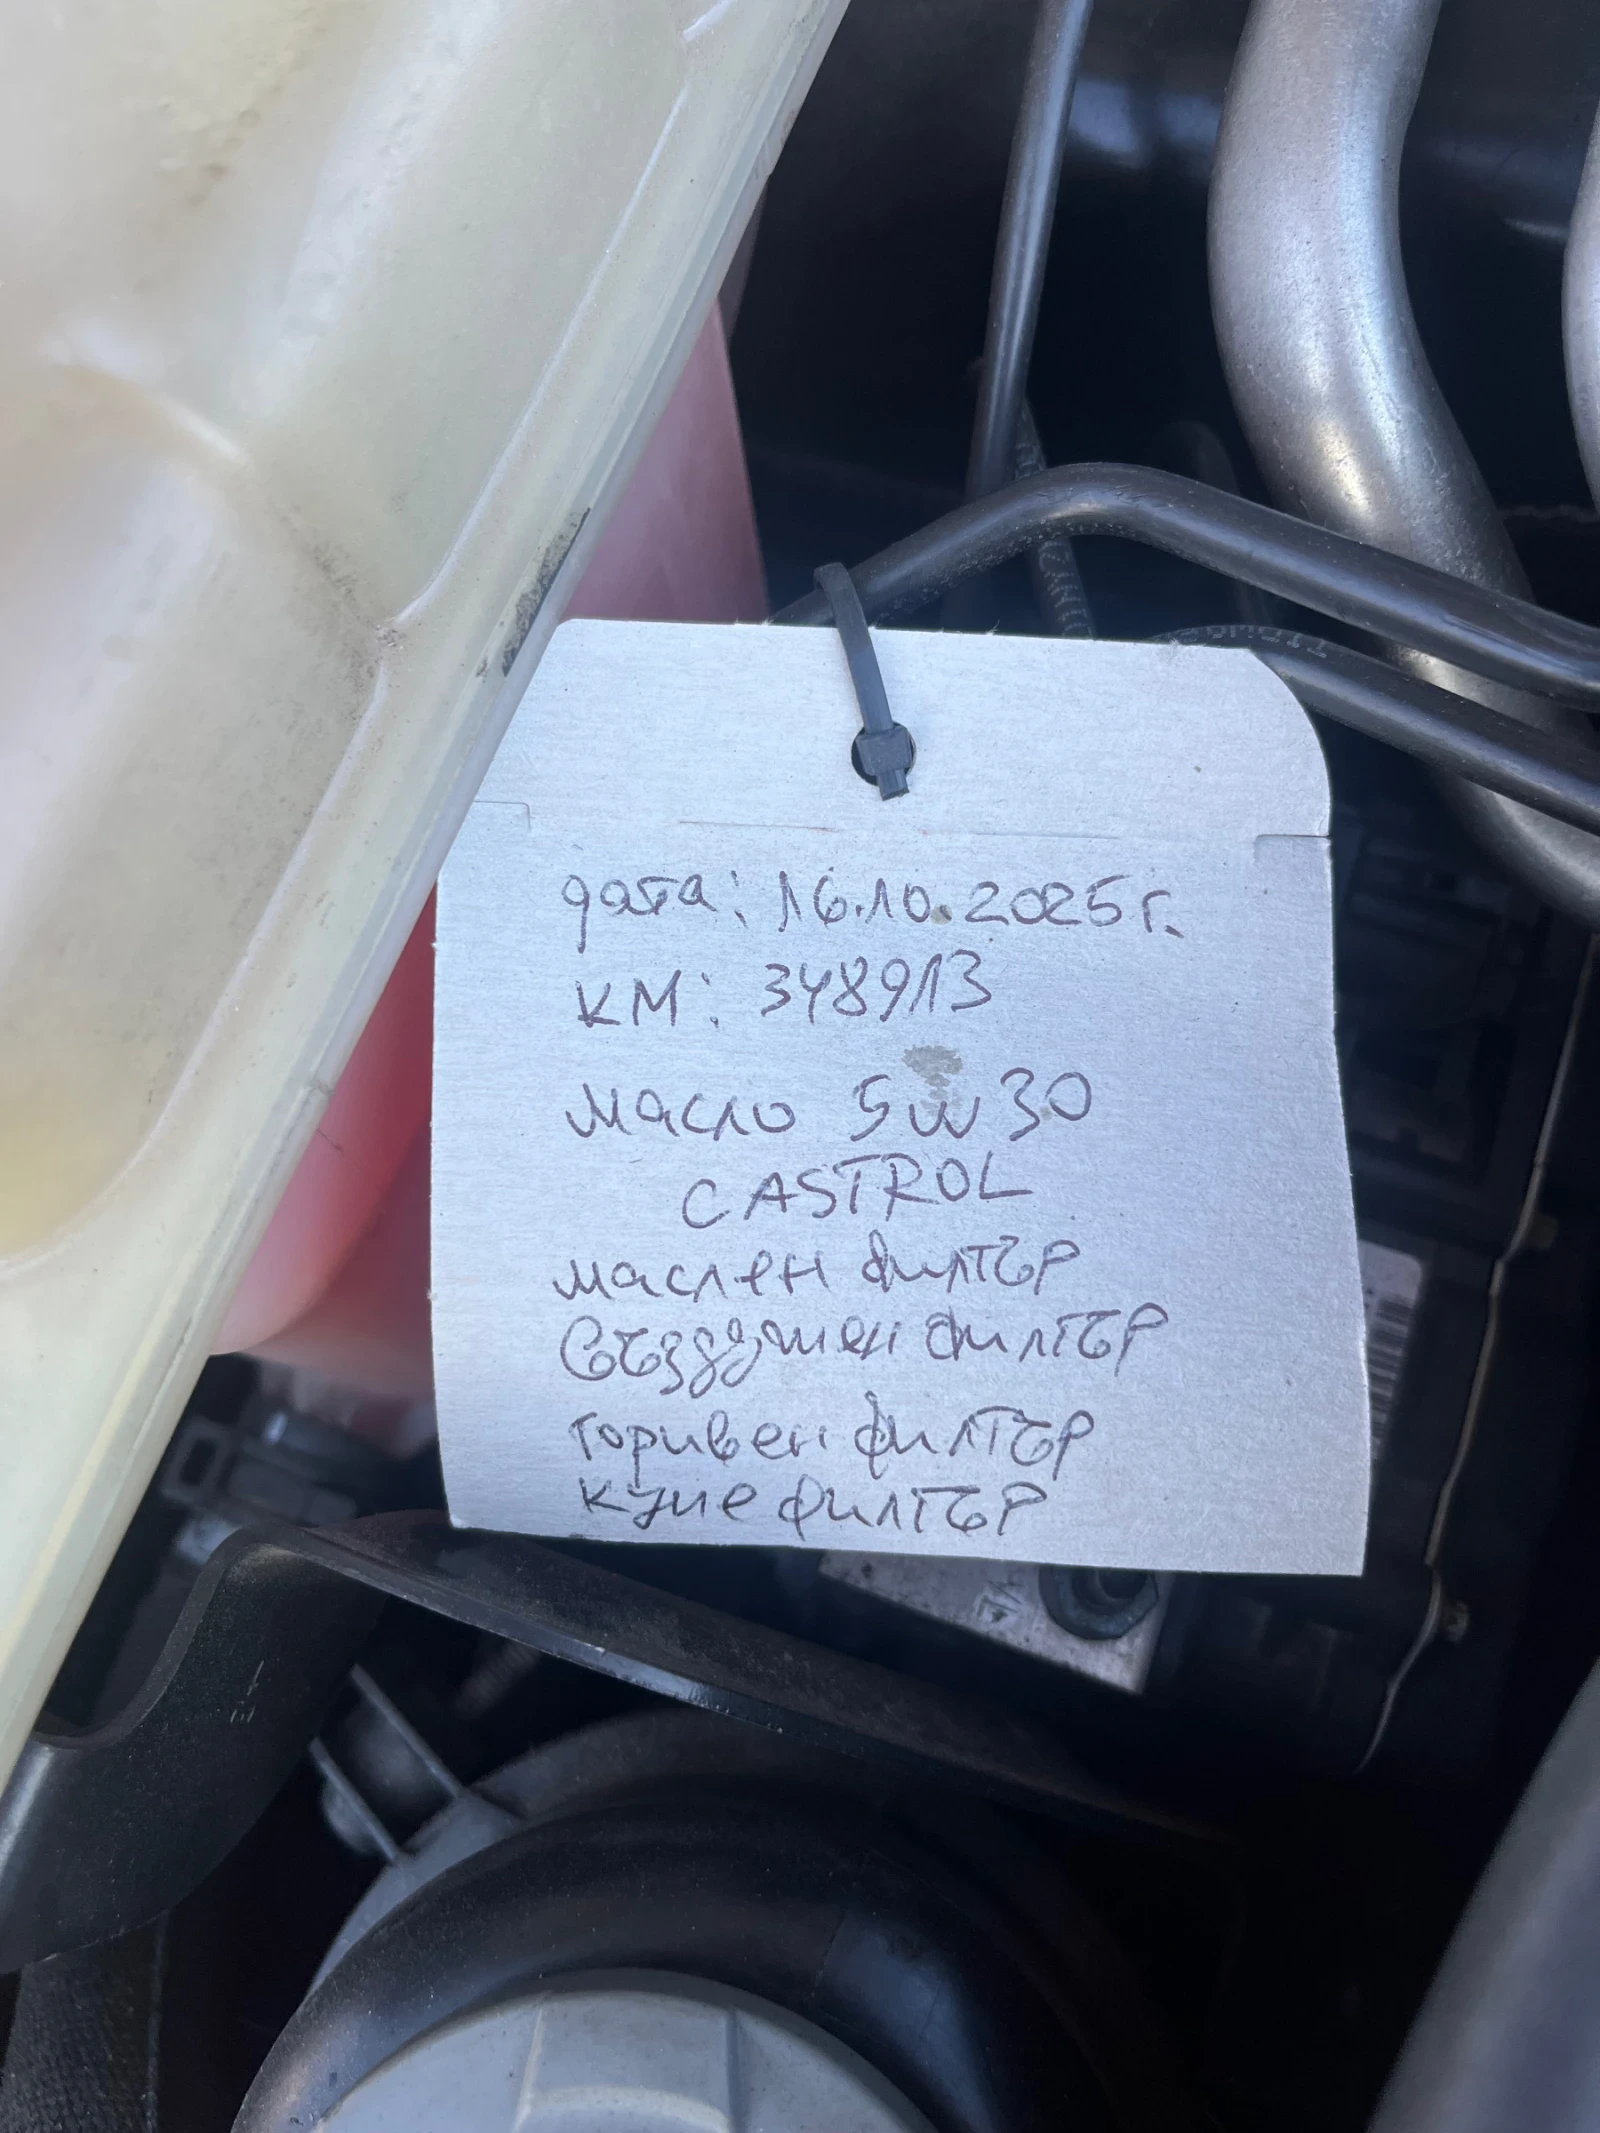 дата: 16.10.2025 г.
КМ: 348913
масло 5w30
CASTROL
маслен филтър
въздушен филтър
горивен филтър
купе филтър